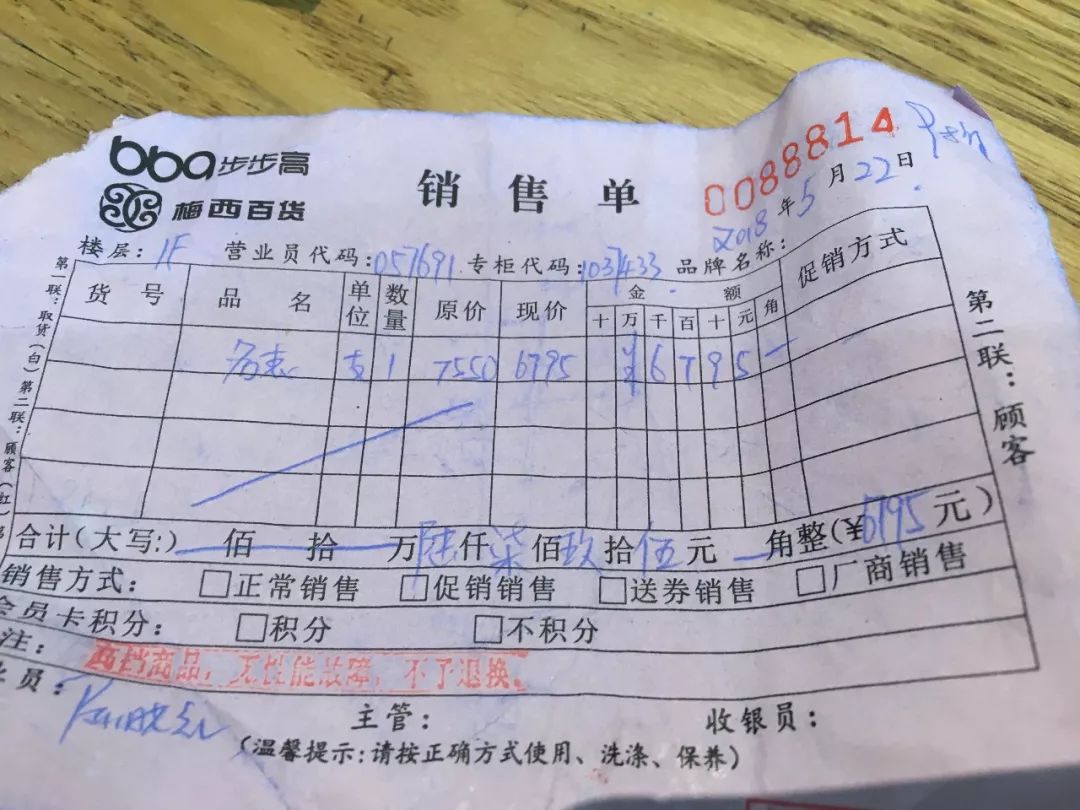 bbg步步高
梅西百货
销售单
0088814
2018年5月22日
楼层：1F 营业员代码：057691 专柜代码：1037433 品牌名称：
货号 品名 单位 数量 原价 现价 金额 促销方式
十 万 千 百 十 元 角
支 1 7550 6795 ¥ 6 7 9 5 —
合计（大写：） 佰 拾 万 陆 仟 柒 佰 玖 拾 伍 元 角整（¥6795元）
销售方式： □正常销售 □促销销售 □送券销售 □厂商销售
会员卡积分： □积分 □不积分
注： 高档商品，无性能故障，不予退换。
业员：
主管： 收银员：
（温馨提示：请按正确方式使用、洗涤、保养）
第一联：取货（白）第二联：顾客（红）
第二联：顾客